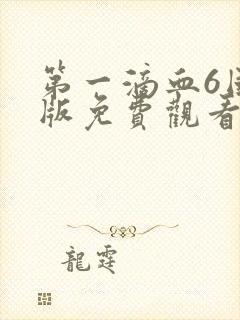 第一滴血6
版免費觀看
龍霆